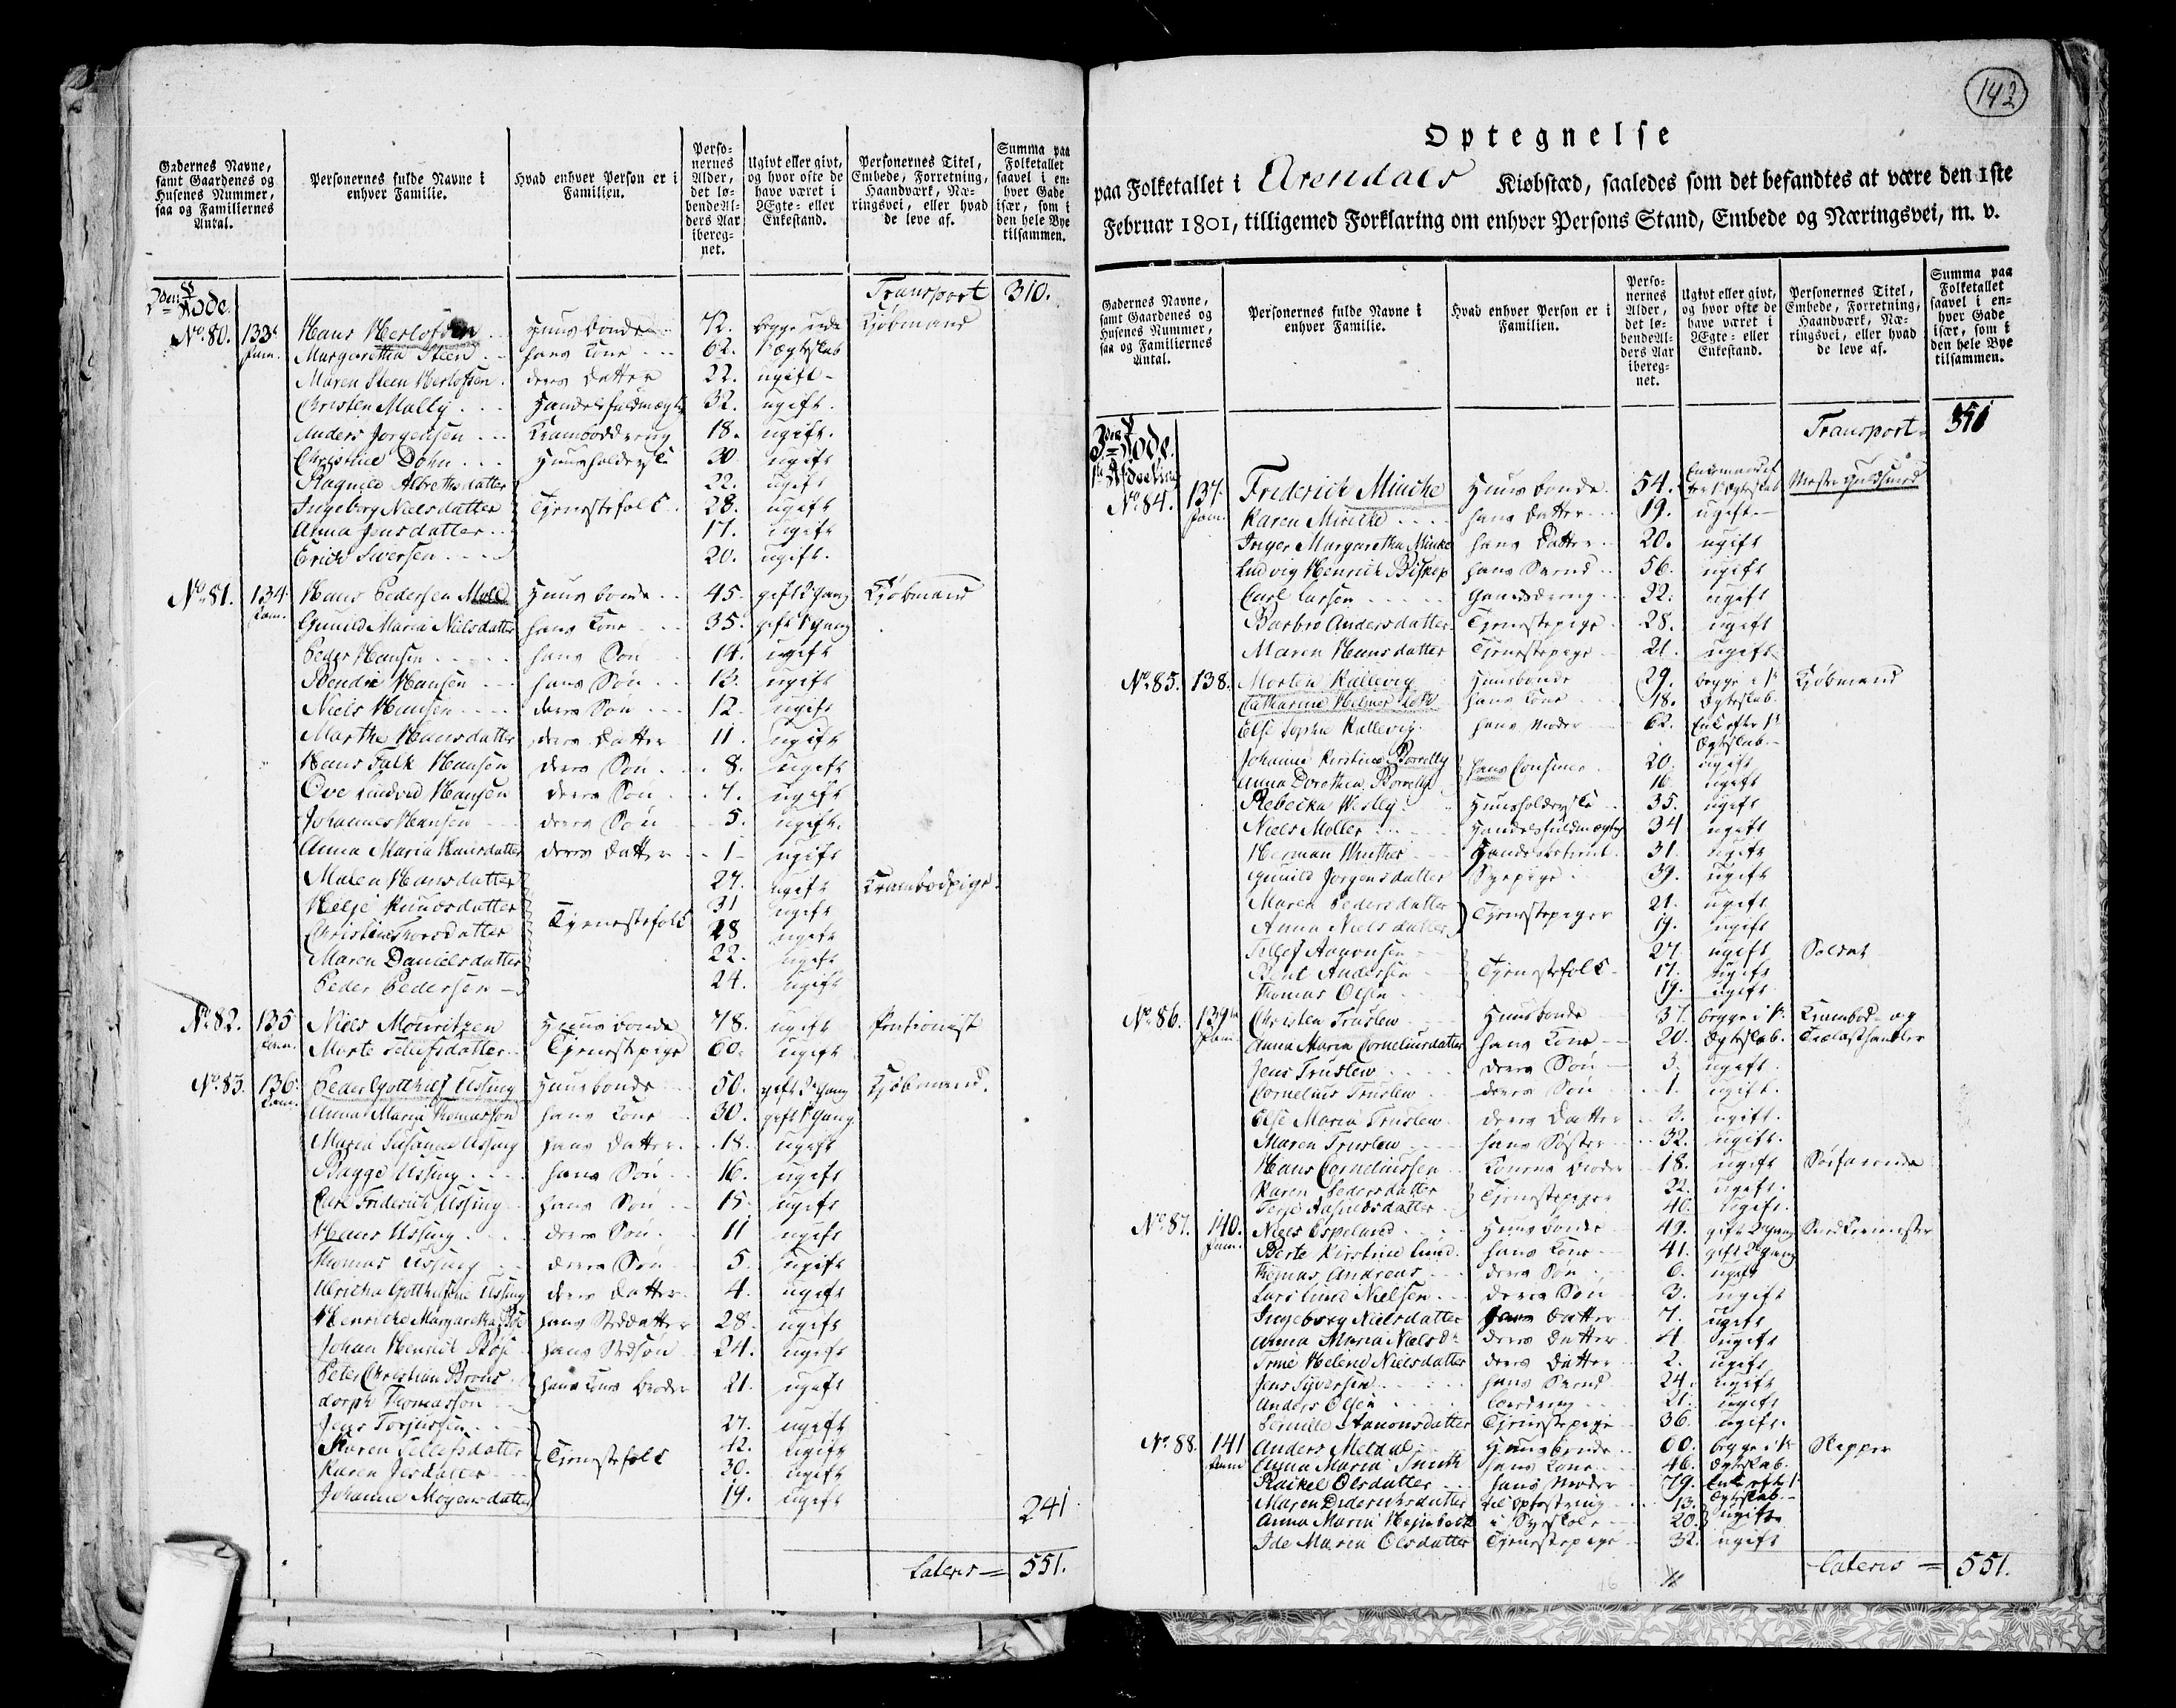 Gadernes Navne, samt Gaardenes og Husenes Nummer, saa og Familiernes Antal.
Personernes fulde Navne i enhver Familie.
Hvad enhver Person er i Familien.
Personernes Alder, det løbende Alders Aar iberegnet.
Ugivt eller givt, og hvor ofte de have været i Ægte- eller Enkestand.
Personernes Titel, Embede, Forretning, Haandværk, Næringsvei, eller hvad de leve af.
Summa paa Folketallet saavel i enhver Gade især, som i den hele Bye tilsammen.
2den Rode. Transport 310.
No. 80. 133 Fam. Hans Herlofsen Huusbonde 72. begge i 1ste Kjøbmand
Margaretha Steen hans Kone 62. Ægteskab
Maren Steen Herlofsen deres Datter 22. ugift
Christen Malby Handelsfuldmægtig 32. ugift.
Anders Jørgensen 18. ugift.
Christine Dohn Huusholderske 30 ugift
Ragnild Albrethsdatter 22. ugift
Ingeborg Nielsdatter Tjenestefolk 28. ugift
Anna Jensdatter 17. ugift
Erich Iversen 20. ugift.
No. 81. 134 Fam. Hans Pedersen Huusbonde 45. gift 2 Gang Kjøbmand
Gunild Maria Nielsdatter hans Kone 35. gift 1 Gang
Peder Hansen hans Søn 14. ugift
Hansen hans Søn 13. ugift
Niels Hansen deres Søn 12 ugift
Marthe Hansdatter deres Datter 11. ugift
Hans Falk Hansen deres Søn 8. ugift
Ove Hansen deres Søn 7. ugift
Johannes Hansen deres Søn 5. ugift.
Anna Maria Hansdatter deres Datter 1 ugift
Maren Hansdatter 27. ugift Krambodpige.
Helje Knudsdatter Tjenestefolk 31 ugift
Christine Thorsdatter 28 ugift
Maren Danielsdatter 22. ugift
Peder Pedersen 24. ugift
No. 82. 135 Fam. Niels Mouritzen Huusbonde 78. ugift Pentionist
Marte Tjenestepige 60. ugift
No. 83. 136 Fam. Peder Gotthilf Ussing Huusbonde 50. gift 2 Gang Kjøbmand.
Anna Maria Thomasson hans Kone 30. gift 1 Gang
Maria Susanne Ussing hans Datter 18. ugift
Bagge Ussing hans Søn 16. ugift
Carl Friderich Ussing hans Søn 15. ugift
Hans Ussing deres Søn 11 ugift
Thomas Ussing deres Søn 5. ugift
Ulricha Gotthilfine Ussing deres Datter 4. ugift
Henriche Margaretha hans Steddatter 28. ugift
Johan Henrich Bøje hans Stedsøn 24. ugift
Peter Christian Brons- hans Kones Broder 21. ugift
dorph Thomasson
Jens Torjussen 27. ugift
Karen Tellefsdatter Tjenestefolk 42. ugift
Karen 30. ugift
Johanne Mogensdatter 19. ugift
241
Lateris 551.
142
Optegnelse
paa Folketallet i Arendals Kiøbstæd, saaledes som det befandtes at være den 1ste
Februar 1801, tilligemed Forklaring om enhver Persons Stand, Embede og Næringsvei, m. v.
Gadernes Navne, samt Gaardenes og Husenes Nummer, saa og Familiernes Antal.
Personernes fulde Navne i enhver Familie.
Hvad enhver Person er i Familien.
Personernes Alder, det løbende Alders Aar iberegnet.
Ugivt eller givt, og hvor ofte de have været i Ægte- eller Enkestand.
Personernes Titel, Embede, Forretning, Haandværk, Næringsvei, eller hvad de leve af.
Summa paa Folketallet saavel i enhver Gade især, som i den hele Bye tilsammen.
3die Rode. Transport
1ste Afdeeling
No. 84. 137 Fam. Friderich Mincke Huusbonde 54.
Karen Mincke hans Datter 19. ugift
Inger Margaretha Minke hans Datter 20. ugift
Ludvig Henrich Biskop hans Svend 56. ugift
Carl Larsen 22. ugift
Barbro Andersdatter Tjenestepige 28. ugift
Maren Hansdatter Tjenestepige 21. ugift
No. 85. 138. Morten Kallevig Huusbonde 29. begge i 1ste Kjøbmand
Catharine hans Kone 18. Ægteskab
Else Sophia Kallevig hans Moder 62. Enke efter 1ste
Ægteskab
Johanne Kirstine 20. ugift
Anna Dorothea 16 ugift
Rebecka Huusholderske 35. ugift
Niels Møller Handelsfuldmægtig 34 ugift
Herman Winther 31. ugift
Gunild Jørgensdatter Syepige 39. ugift
Maren Pedersdatter Tjenestepiger 21. ugift
Anna Nielsdatter 19. ugift
Tellef Aanonsen 27. ugift Soldat
Berit Andersen Tjenestefolk 17. ugift
Thomas Olsen 19. ugift
No. 86. 139 Fam. Christen Truslew Huusbonde 37. begge i 1ste Krambod- og
Anna Maria Corneliusdatter hans Kone 20. Ægteskab. Trælasthandler
Jens Truslew deres Søn 3. ugift
Cornelius Truslew deres Søn 1. ugift.
Else Maria Truslew deres Datter ugift.
Maren Truslew hans Søster 32. ugift.
Hans Corneliussen Konens Broder 18. ugift Søefarende
Karen Pedersdatter Tjenestepiger 22. ugift.
Terje 40. ugift.
No. 87. 140. Fam. Niels Espelund Huusbonde 49. gift 2 Gang Snedkermester
Berte Kirstine Lund hans Kone 41. gift 2 Gang
Thomas Andreas deres Søn 6. ugift
Lars Lund Nielsen deres Søn 3. ugift
Ingeborg Nielsdatter hans Datter 7. ugift
Anna Maria Nielsdr deres Datter 4. ugift
Helene Nielsdatter deres Datter 2. ugift
Jens Syversen hans Svend 24. ugift
Anders Olsen Læredreng 21. ugift
Aanonsdatter Tjenestepige 36. ugift.
No. 88. 141 Fam. Anders Meldal Huusbonde 60. begge i 1ste Skipper
Anna Maria Smith hans Kone 46. Ægteskab.
Rakel Olsdatter hans Moder 79. Enke efter 1ste
Ægteskab
Maren Diderichsdatter til Opfostring 13. ugift
Anna Maria i Syeskole 20.
Ide Maria Olsdatter Tjenestepige 32. ugift
Lateris 551.